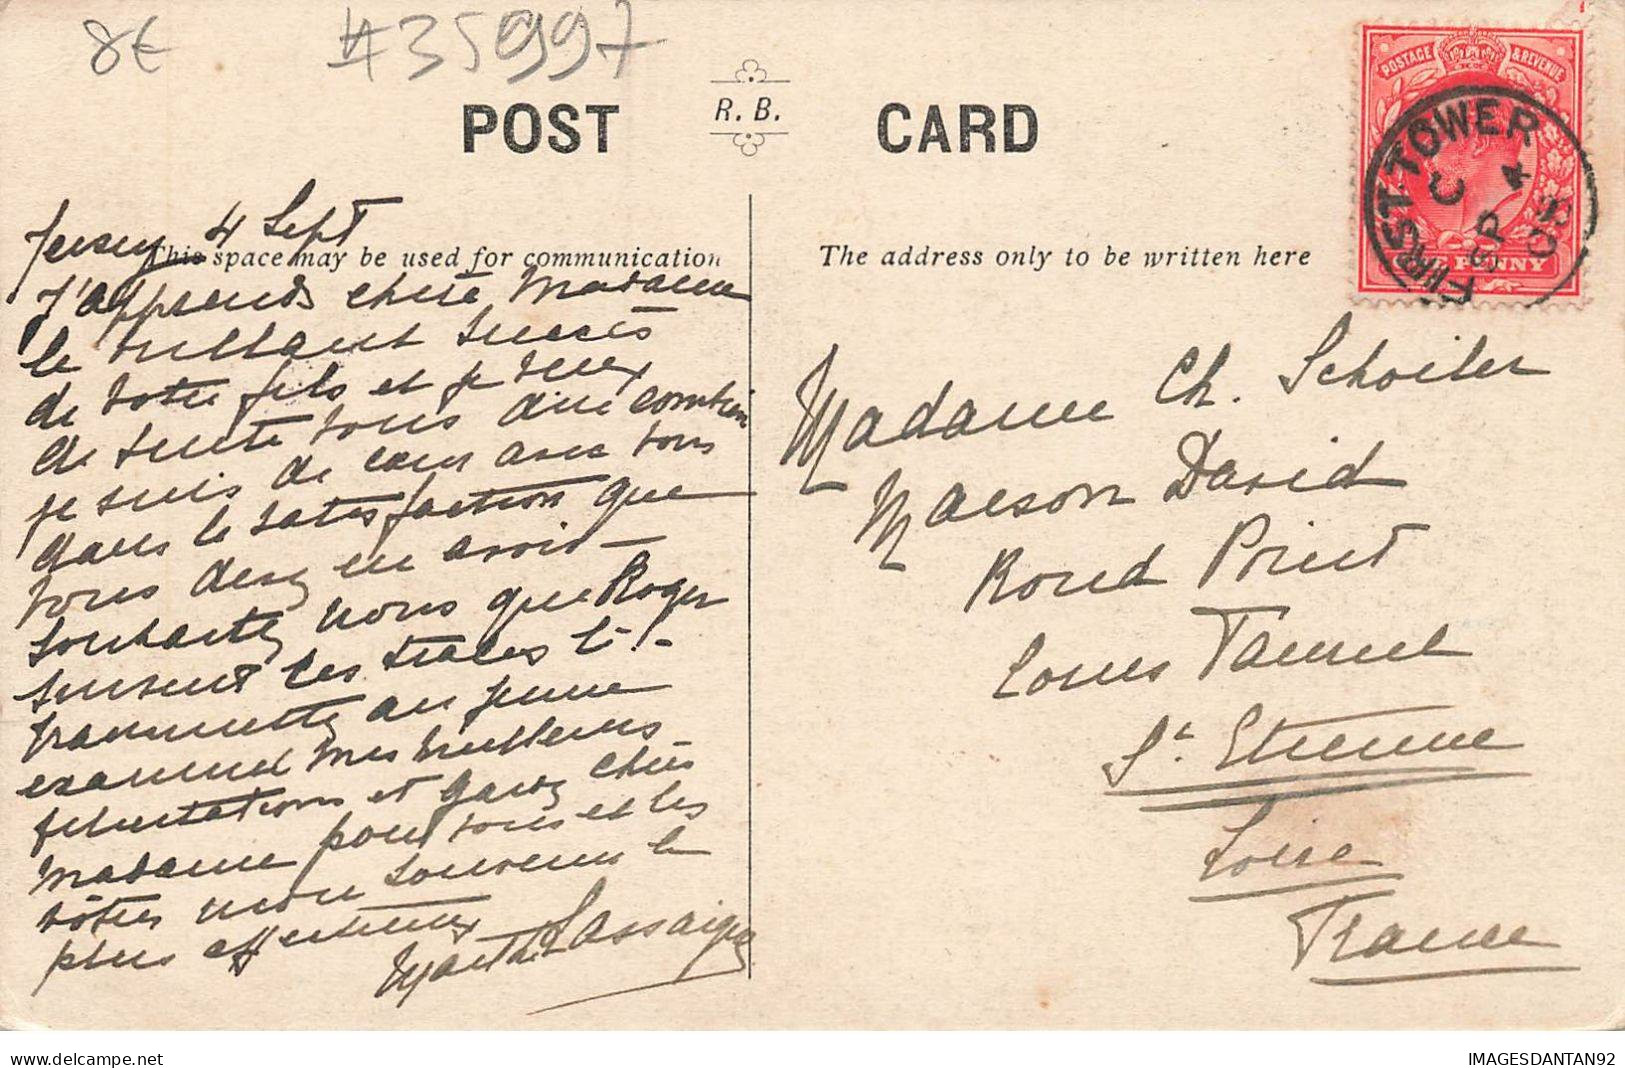 8€
#35997
POST R. B. CARD
POSTAGE & REVENUE
ONE PENNY
FIRST TOWER
C
SP 4
08
This space may be used for communication
The address only to be written here
Jersey 4 Sept
J'apprends chère Madame
le brillant succès
de votre fils et je veux
de suite vous dire combien
je suis de cœur avec vous
dans la satisfaction que
vous devez en avoir
Souhaitez nous que Roger
suivent ses traces !! -
Transmettez au jeune
examiné mes meilleures
félicitations et gardez chère
Madame pour vous et les
vôtres mon souvenir le
plus affectueux
Marthe Lassaigne
Madame Ch. Schoiler
Maison David
Rond Point
St. Etienne
Loire
France
delcampe.net
IMAGESDANTAN92